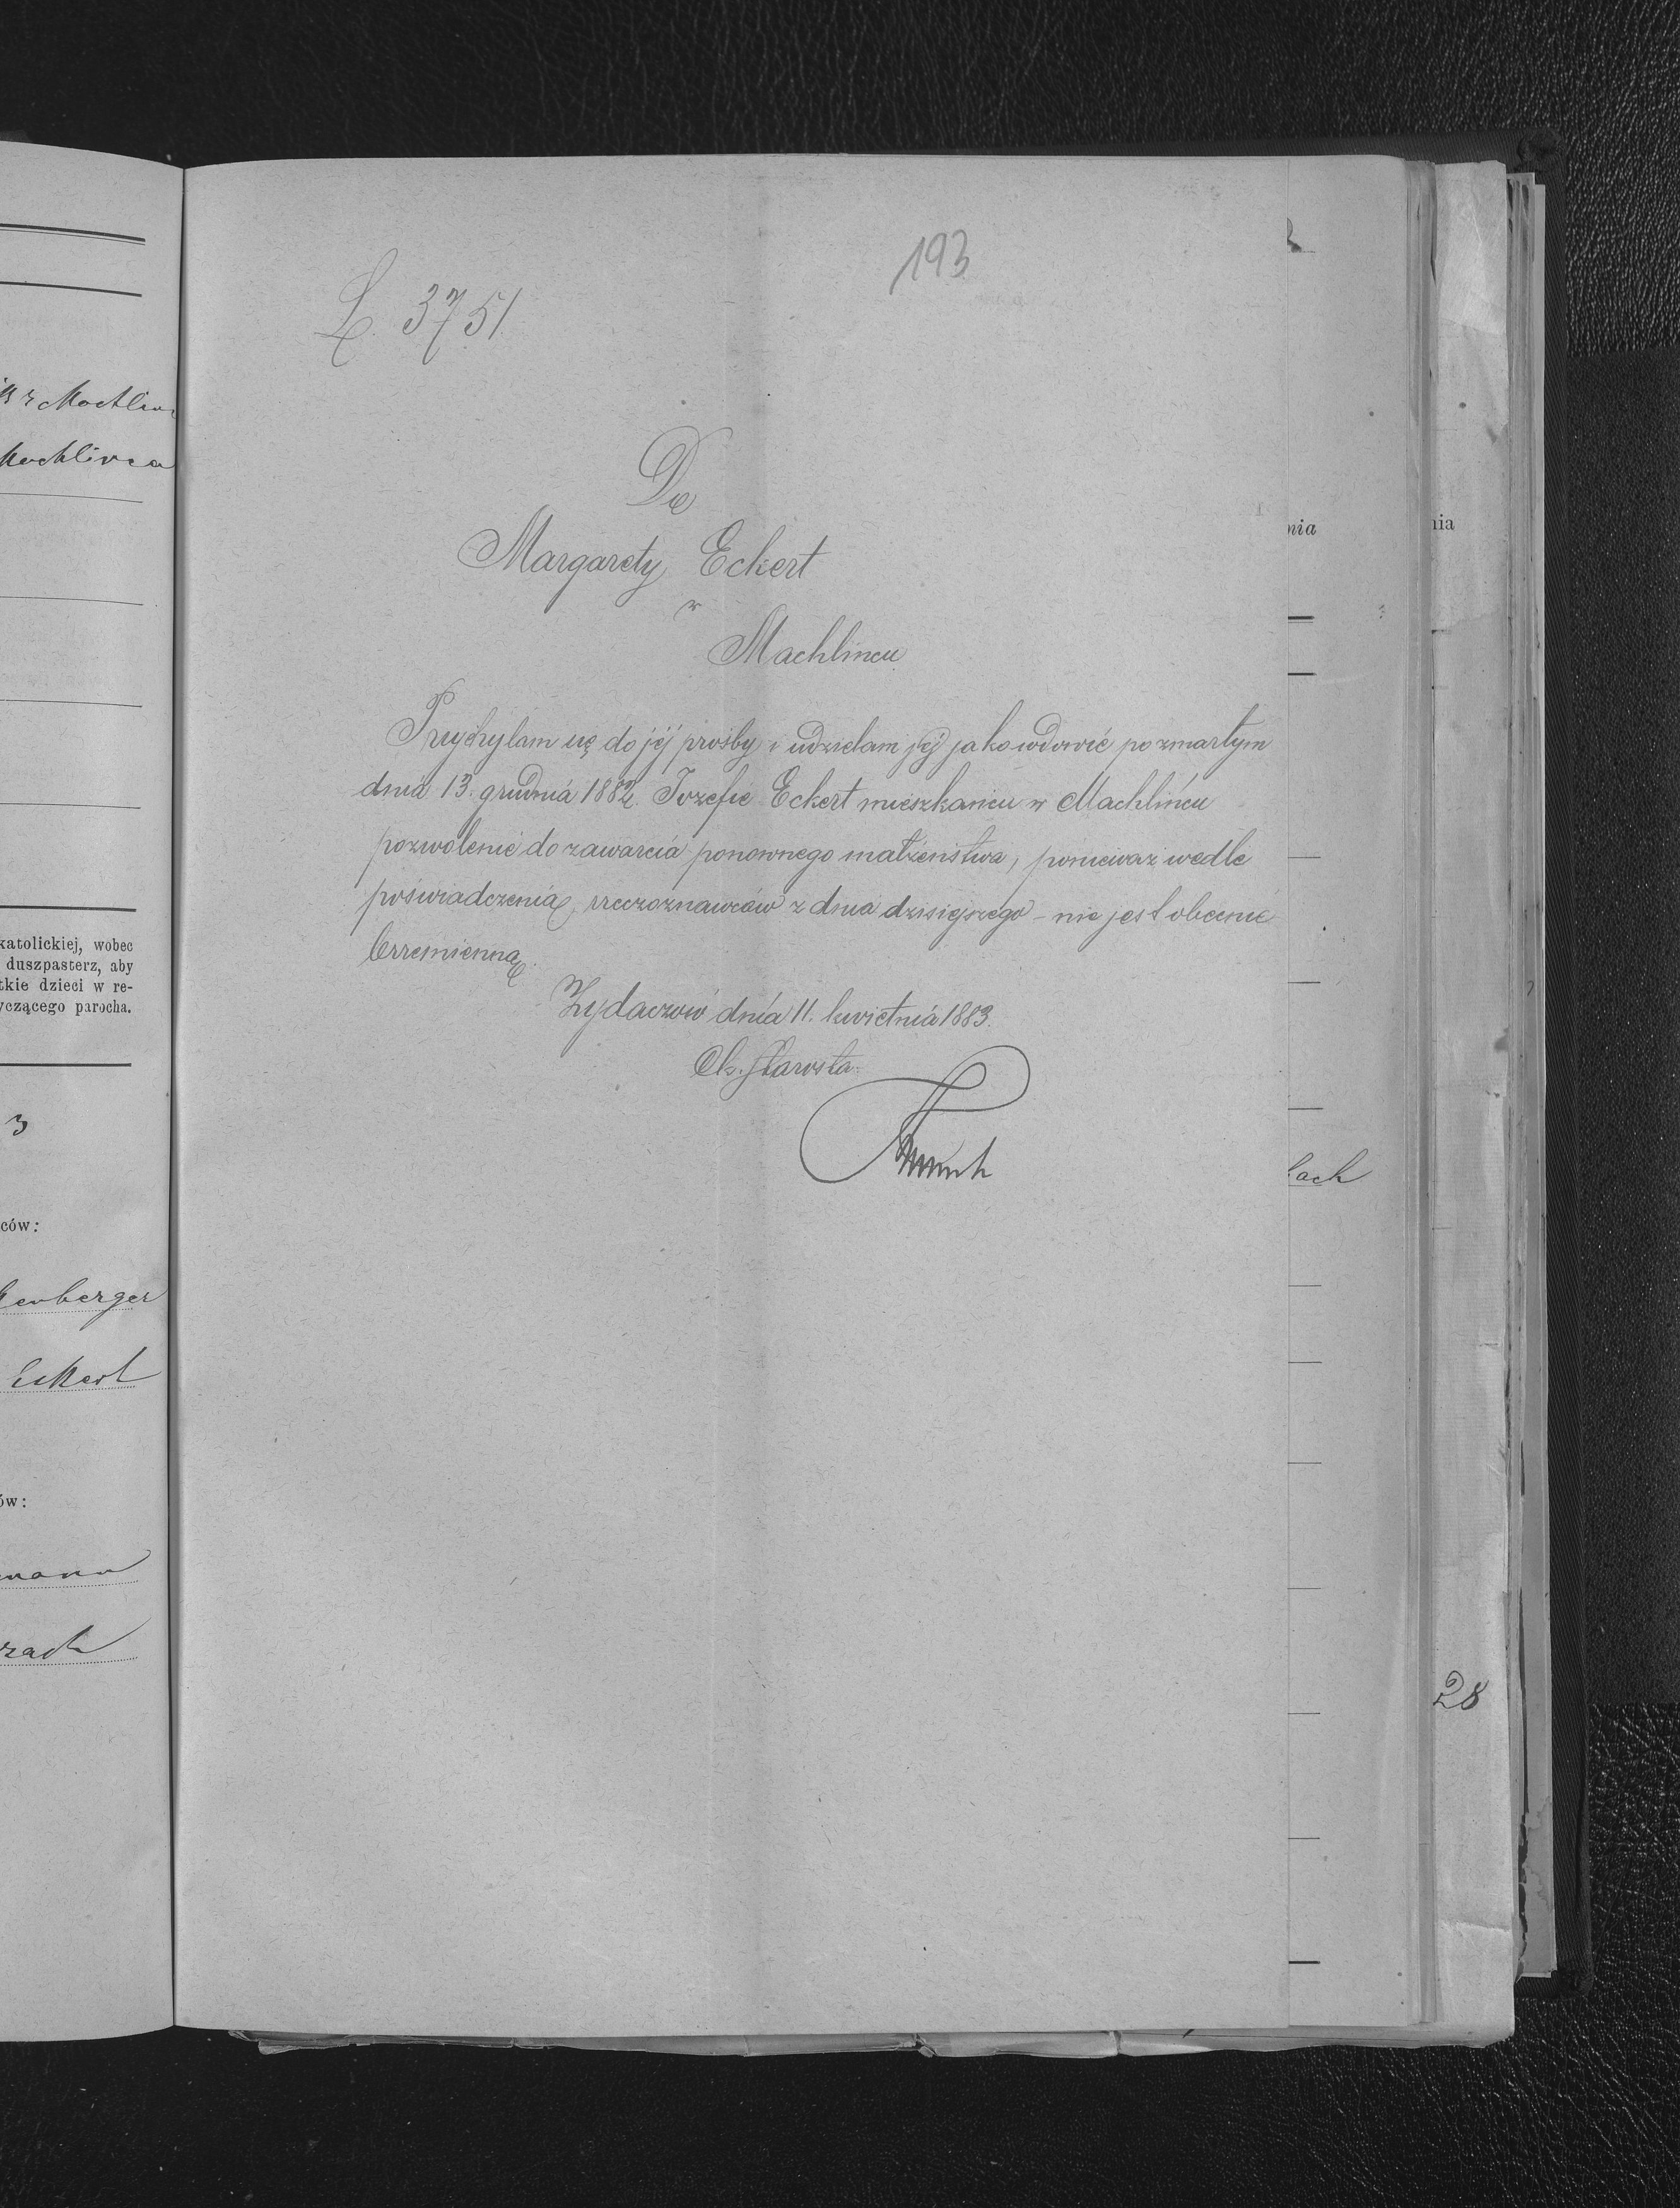 193
L. 3751
Do
Margarety Eckert
w
Machlincu
Przychylam się do jéj prośby i udzielam jéj jako wdowie po zmarłym
dnia 13. grudnia 1882. Jozefie Eckert mieszkańcu w Machlińcu
pozwolenie do zawarcia ponownego małżeństwa, ponieważ wedle
poświadczenia rzeczoznawców z dnia dzisiejszego – nie jest obecnie
brzemienną.
Żydaczów dnia 11. kwietnia 1883.
Ck. Starosta
z Machlińc
Machlińca
katolickiej, wobec
duszpasterz, aby
tkie dzieci w re-
yczącego parocha.
3
ców:
enberger
Eckert
ów:
mann
rach
nia
nia
bach
28